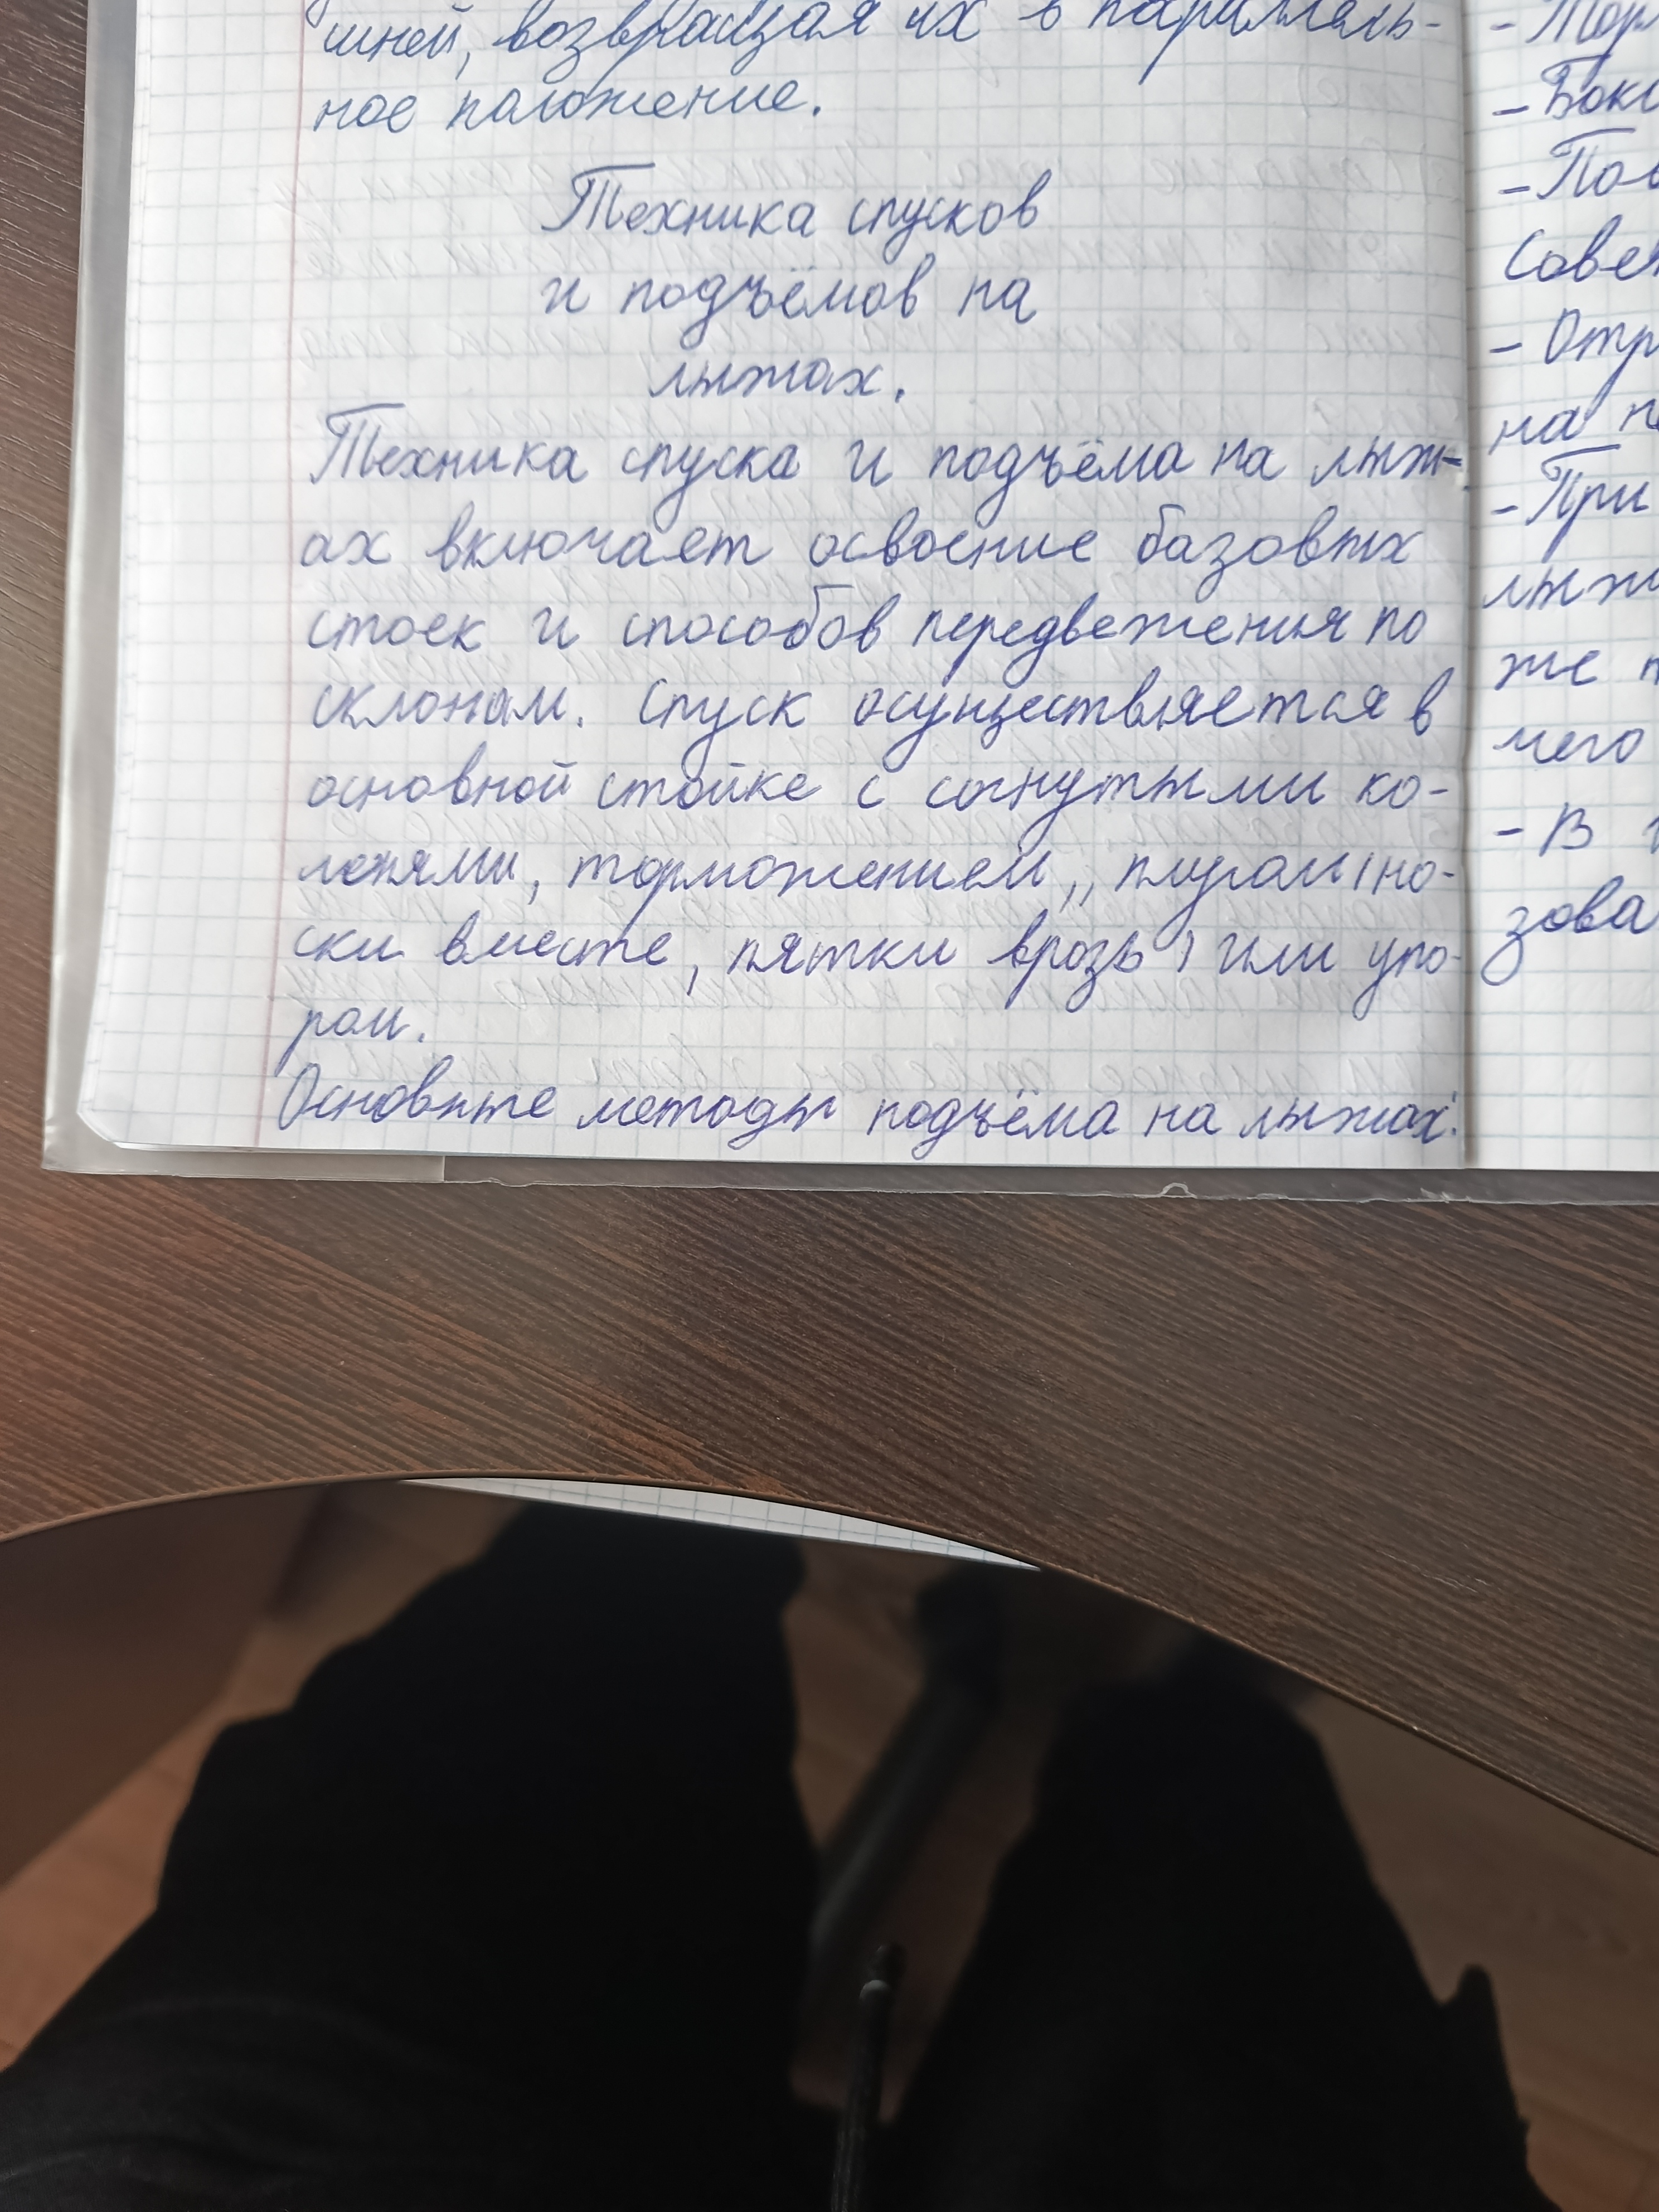 шней, возвращая их в параллель-
ное положение.
Техника спусков
и подъёмов на
лыжах.
Техника спуска и подъёма на лыж-
ах включает освоение базовых
стоек и способов передвежения по
склонам. Спуск осуществляется в
основной стойке с согнутыми ко-
ленями, торможением „плугом (но-
ски вместе, пятки врозь) или упо-
ром.
Основные методы подъёма на лыжах:
-
-
-
-
на
- При
же
чего
- В